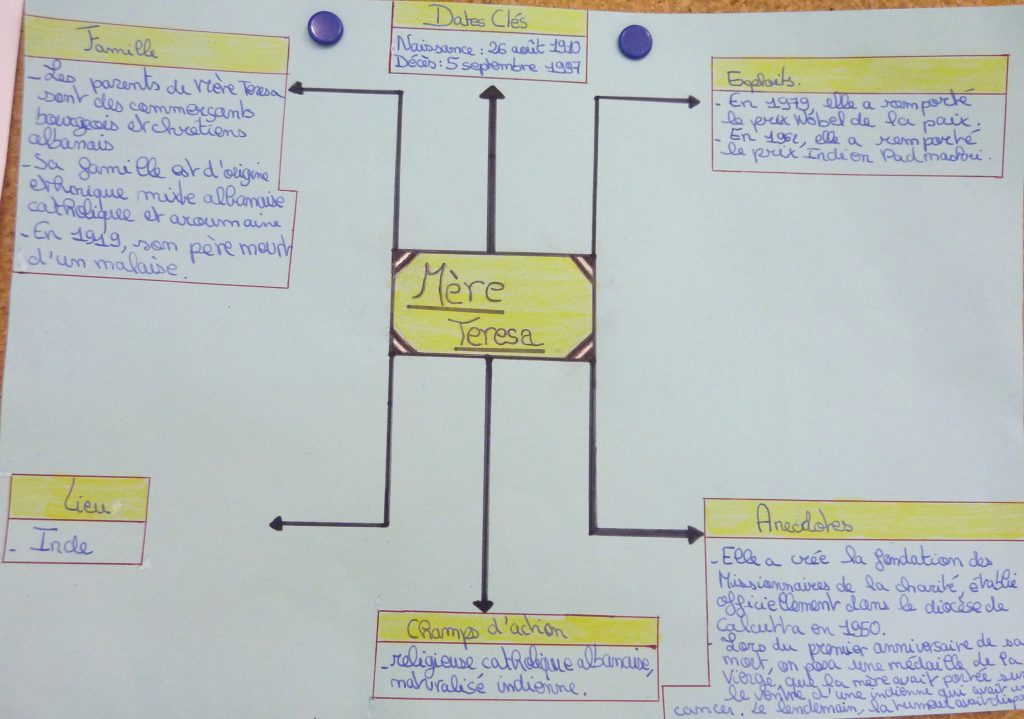 Famille
- Les parents de Mère Teresa
sont des commerçants
bourgeois et chrétiens
albanais
- Sa famille est d'origine
ethnique mixte albanaise
catholique et aroumaine
- En 1919, son père meurt
d'un malaise.
Dates Clés
Naissance : 26 août 1910
Décès : 5 septembre 1997
Exploits.
- En 1979, elle a remporté
le prix Nobel de la paix.
- En 1962, elle a remporté
le prix Indien Padmashri.
Mère
Teresa
Lieu
- Inde
Champs d'action
- religieuse catholique albanaise,
naturalisé indienne.
Anecdotes
- Elle a créé la fondation des
Missionnaires de la charité, établie
officiellement dans le diocèse de
Calcutta en 1950.
- Lors du premier anniversaire de sa
mort, on posa une médaille de la
Vierge, que la mère avait portée sur
le ventre d'une indienne qui avait un
cancer. Le lendemain, la tumeur avait